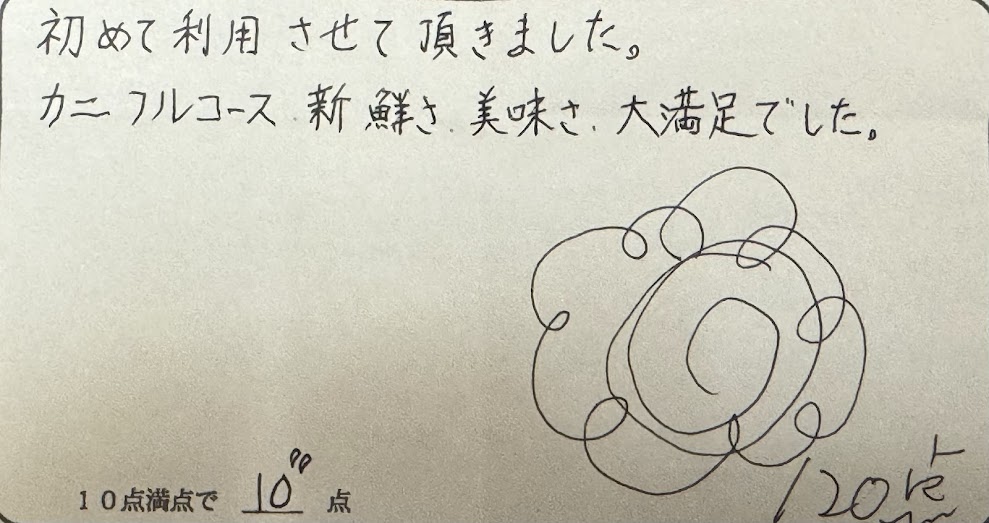 初めて利用させて頂きました。
カニフルコース.新鮮さ.美味さ.大満足でした。
10点満点で 10〃 点
120点